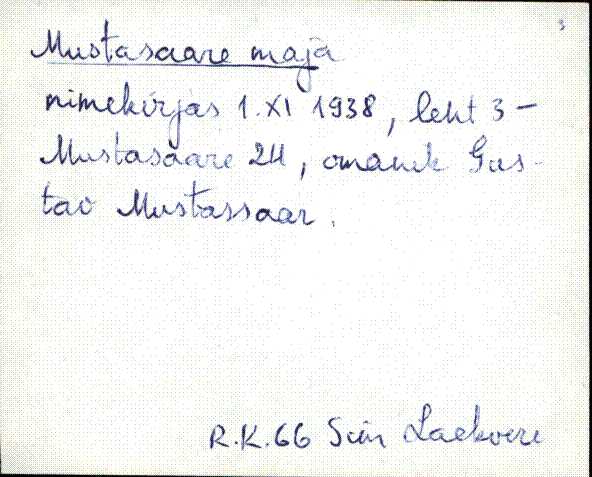 Mustasaare maja
nimekirjas 1.XI 1938, leht 3 –
Mustasaare 24, omanik Gus-
tav Mustassaar.
R.K.66 Sim Laekvere